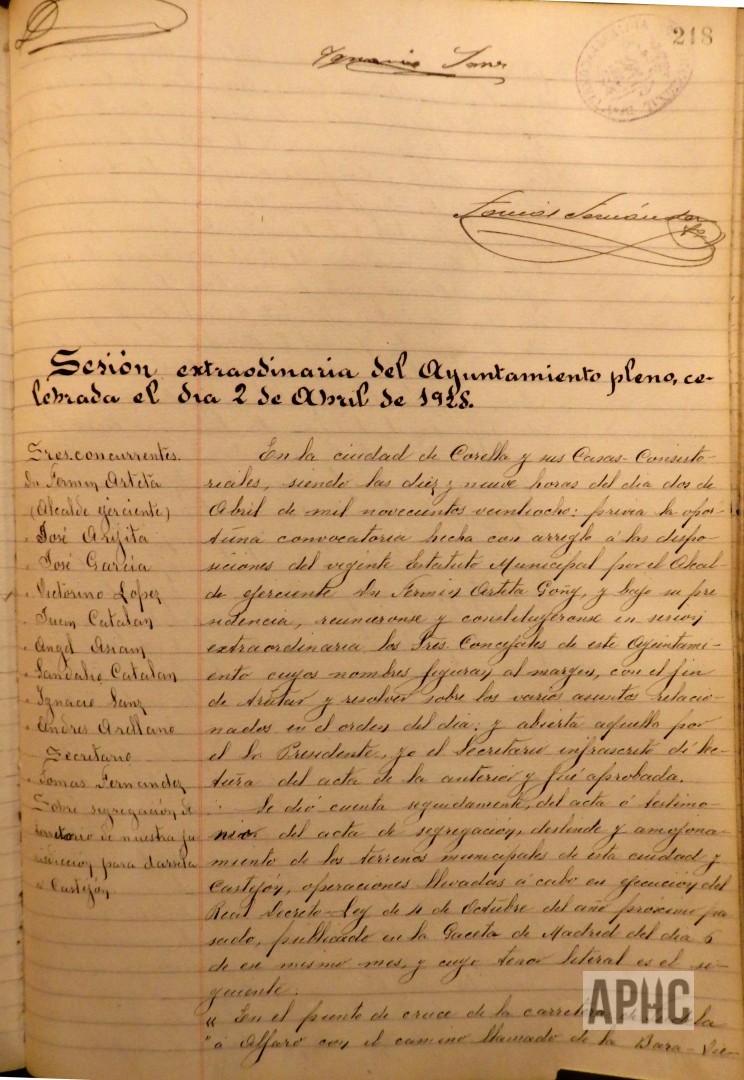 218
Ignacio Sanz
Tomás Fernández
Sesión extraodinaria del Ayuntamiento pleno, ce-
lebrada el dia 2 de Abril de 1928.
Sres. concurrentes.
Dn Fermin Arteta
(Alcalde ejerciente)
" José Argita
" José Garcia
" Victorino Lopez
" Juan Catalan
" Angel Asiain
" Sandalio Catalan
" Ignacio Sanz
" Andres Arellano
Secretario
" Tomas Fernandez
Sobre segregación de
territorio de nuestra ju
risdiccion para darsela
a Castejón
En la ciudad de Corella y sus Casas-Consisto-
riales, siendo las diez y nueve horas del dia dos de
Abril de mil novecientos veintiocho: previa la opor-
tuna convocatoria hecha con arreglo á las dispo-
siciones del vigente Estatuto Municipal por el Alcal-
de ejerciente Dn Fermin Arteta Goñy, y bajo su pre
sidencia, reunieronse y constituyéronse en sesion
extraordinaria los Sres. Concejales de este Ayuntami-
ento cuyos nombres figuran al margen, con el fin
de tratar y resolver sobre los varios asuntos relacio-
nados en el orden del dia; y abierta aquella por
el Sr Presidente, yo el Secretario infrascrito dí lec-
tura del acta de la anterior y fué aprobada.
Se dió cuenta seguidamente, del acta ó testimo-
nio del acta de segregacion, deslinde y amojona-
miento de los terrenos municipales de esta ciudad y
Castejón, operaciones llevadas á cabo en ejecución del
Real Decreto-Ley de 4 de Octubre del año proximo pa
sado, publicado en la Gaceta de Madrid del dia 6
de ese mismo mes, y cuyo tenor literal es el si-
guiente:
" En el punto de cruce de la carretera de
" á Alfaro con el camino llamado de la Bara-Vie-
APHC